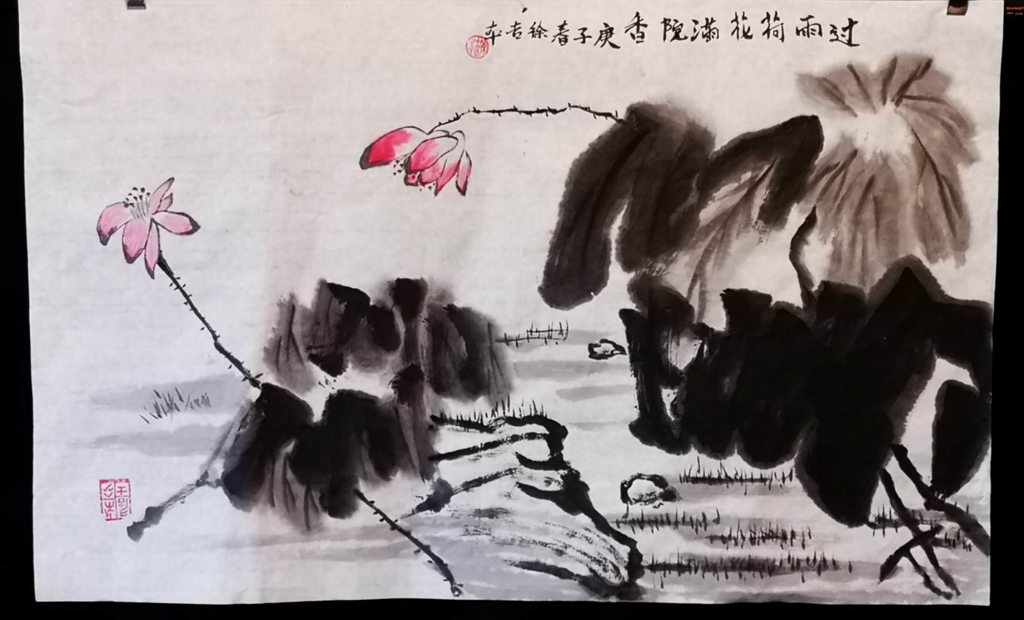 过雨荷花满院香庚子春徐吉本